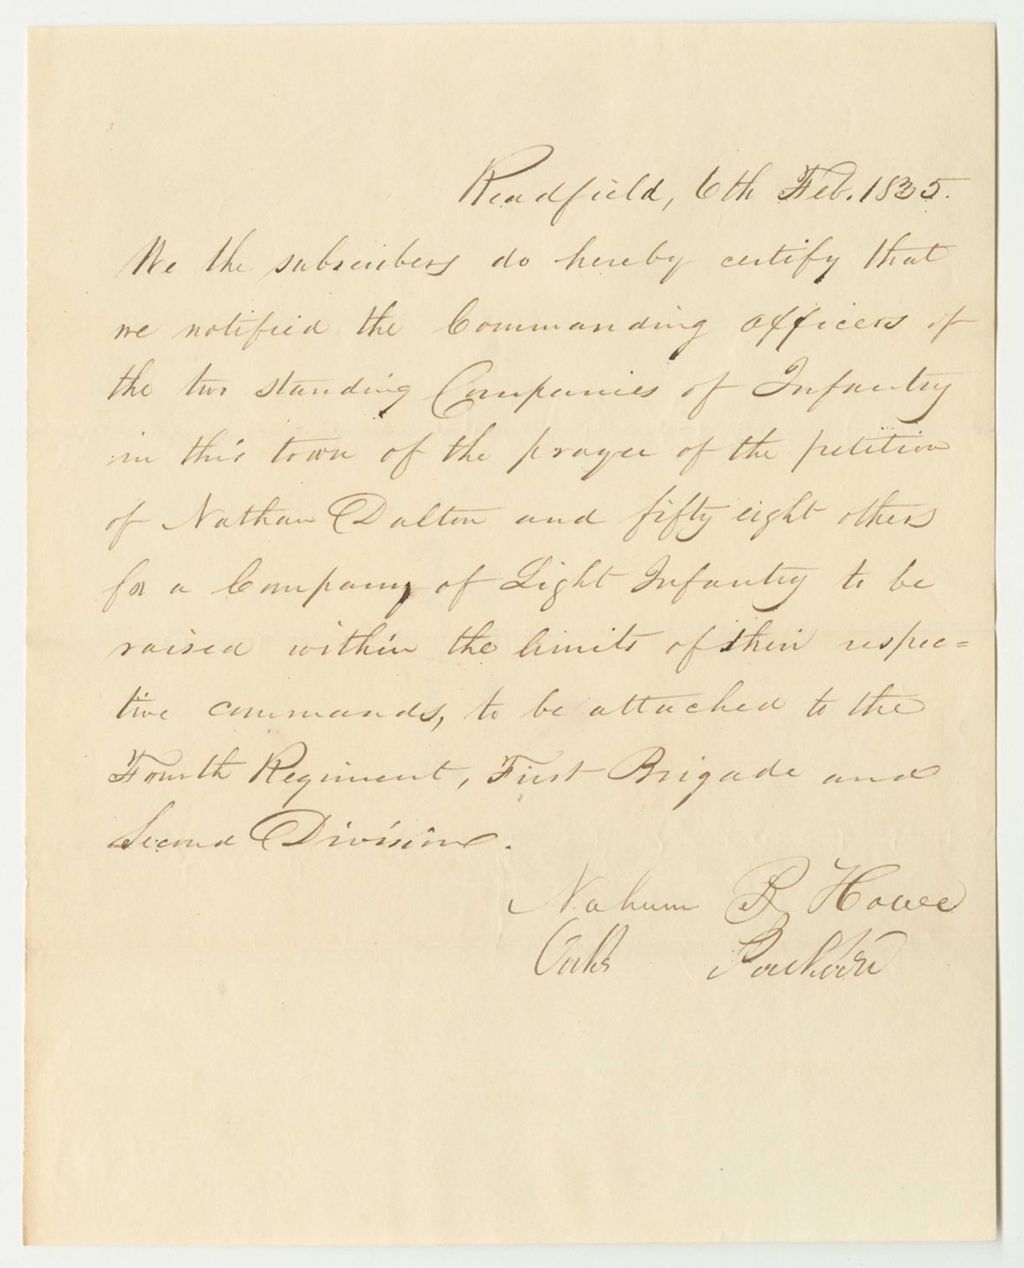 Readfield, 6th Feb. 1835.
We the subscribers do hereby certify that
we notified the Commanding officers of
the two standing Companies of Infantry
in this town of the prayer of the petition
of Nathan Dalton and fifty eight others
for a Company of Light Infantry to be
raised within the limits of their respec=
tive commands, to be attached to the
Fourth Regiment, First Brigade and
Second Division.
Nahum B Howe